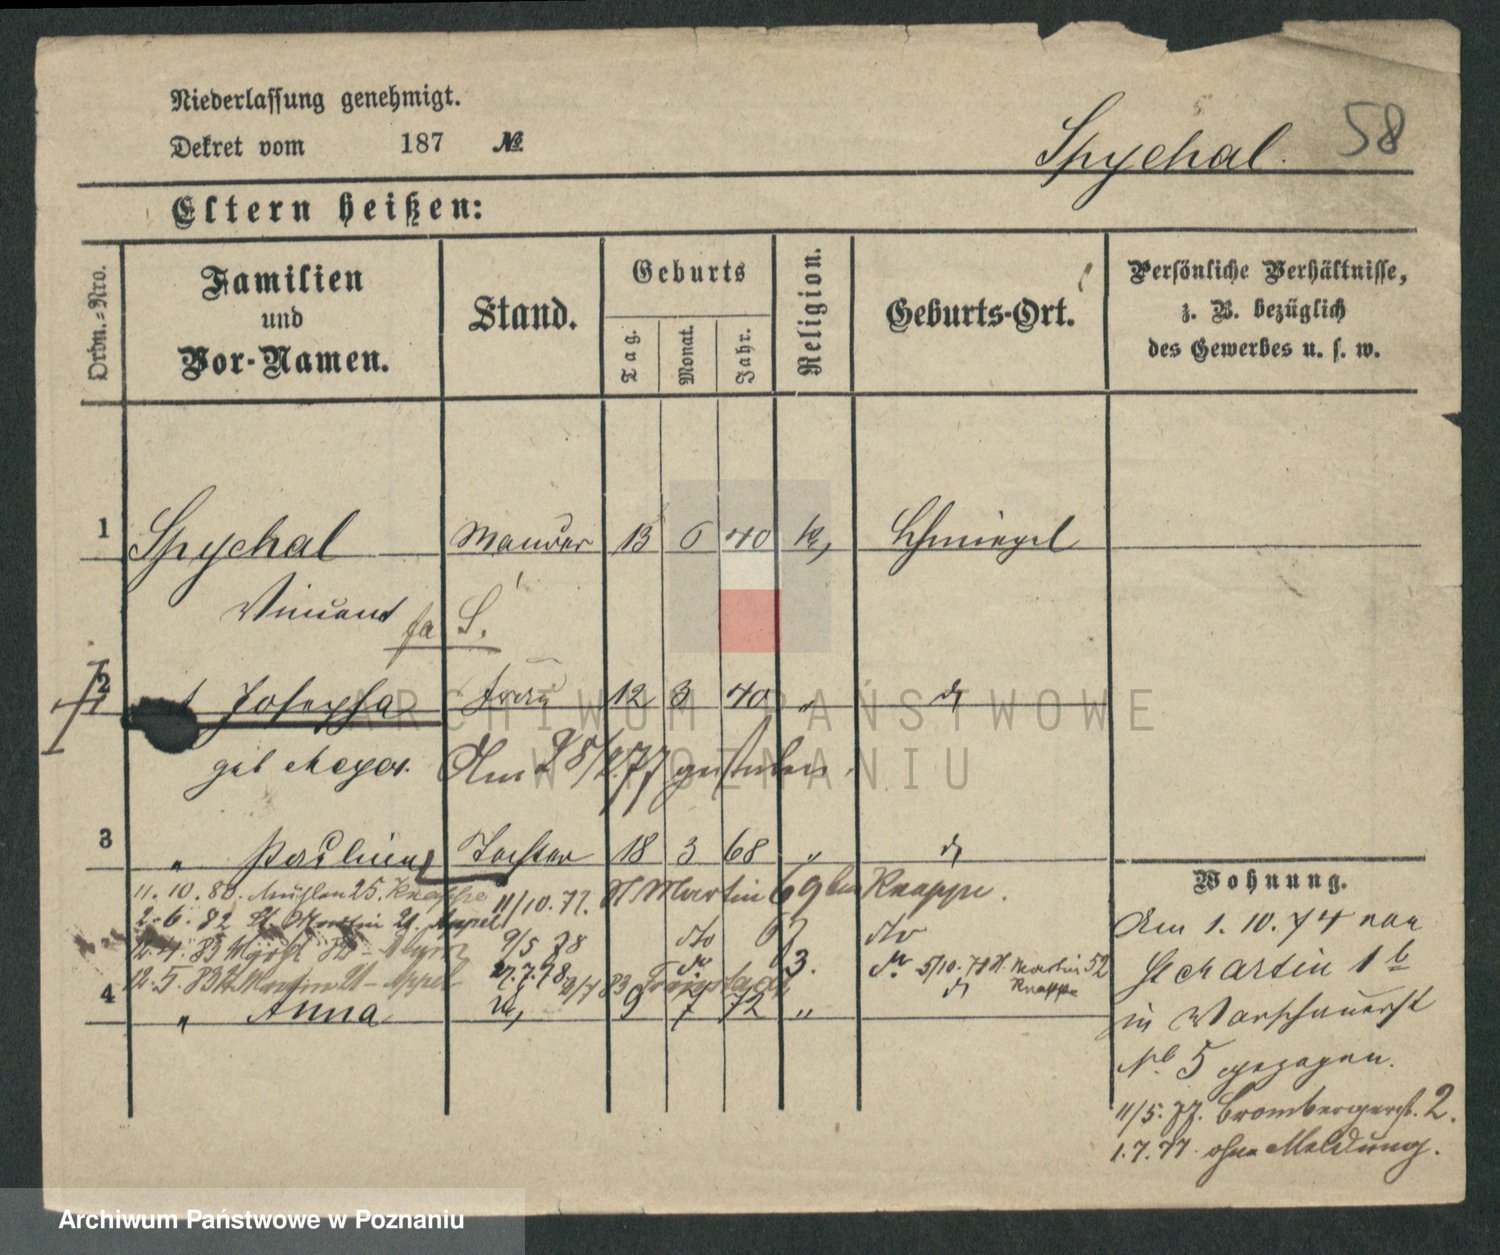 Niederlassung genehmigt.
Dekret vom 187 №
Spychal. 58
Eltern heißen:
Ordn.-Nro.
Familien
und
Vor-Namen.
Stand.
Geburts
Tag.
Monat.
Jahr.
Religion.
Geburts-Ort.
Persönliche Verhältnisse,
z. B. bezüglich
des Gewerbes u. s. w.
1 Spychal Maurer 13 6 40 k, Schmiegel
Vincent
fa S.
2 Josepha Frau 12 3 40 " d
geb Meyer. Am 28/2.77 gestorben.
3 " Pauline Tochter 18 3 68 " d
11. 10. 80. Mühlen 25. Knappe 11/10. 77. St Martin 69 bei Knappe.
2. 6. 82 St. Martin 21. Appel 9/5 78 dto dto
12. 4. 83 27. 7. 78 3. 5/10. 78 St. Martin 52
Knappe
12. 5. 83 St. Martin 21 - Appel
4 " Anna 9 7 72 " d
Wohnung.
Am 1. 10. 74 von
St Martin 1 b
in Warschauerst
No 5 gezogen.
11/5. 77. Brombergerst. 2.
1. 7. 77 ohne Meldung.
ARCHIWUM PAŃSTWOWE
W POZNANIU
Archiwum Państwowe w Poznaniu